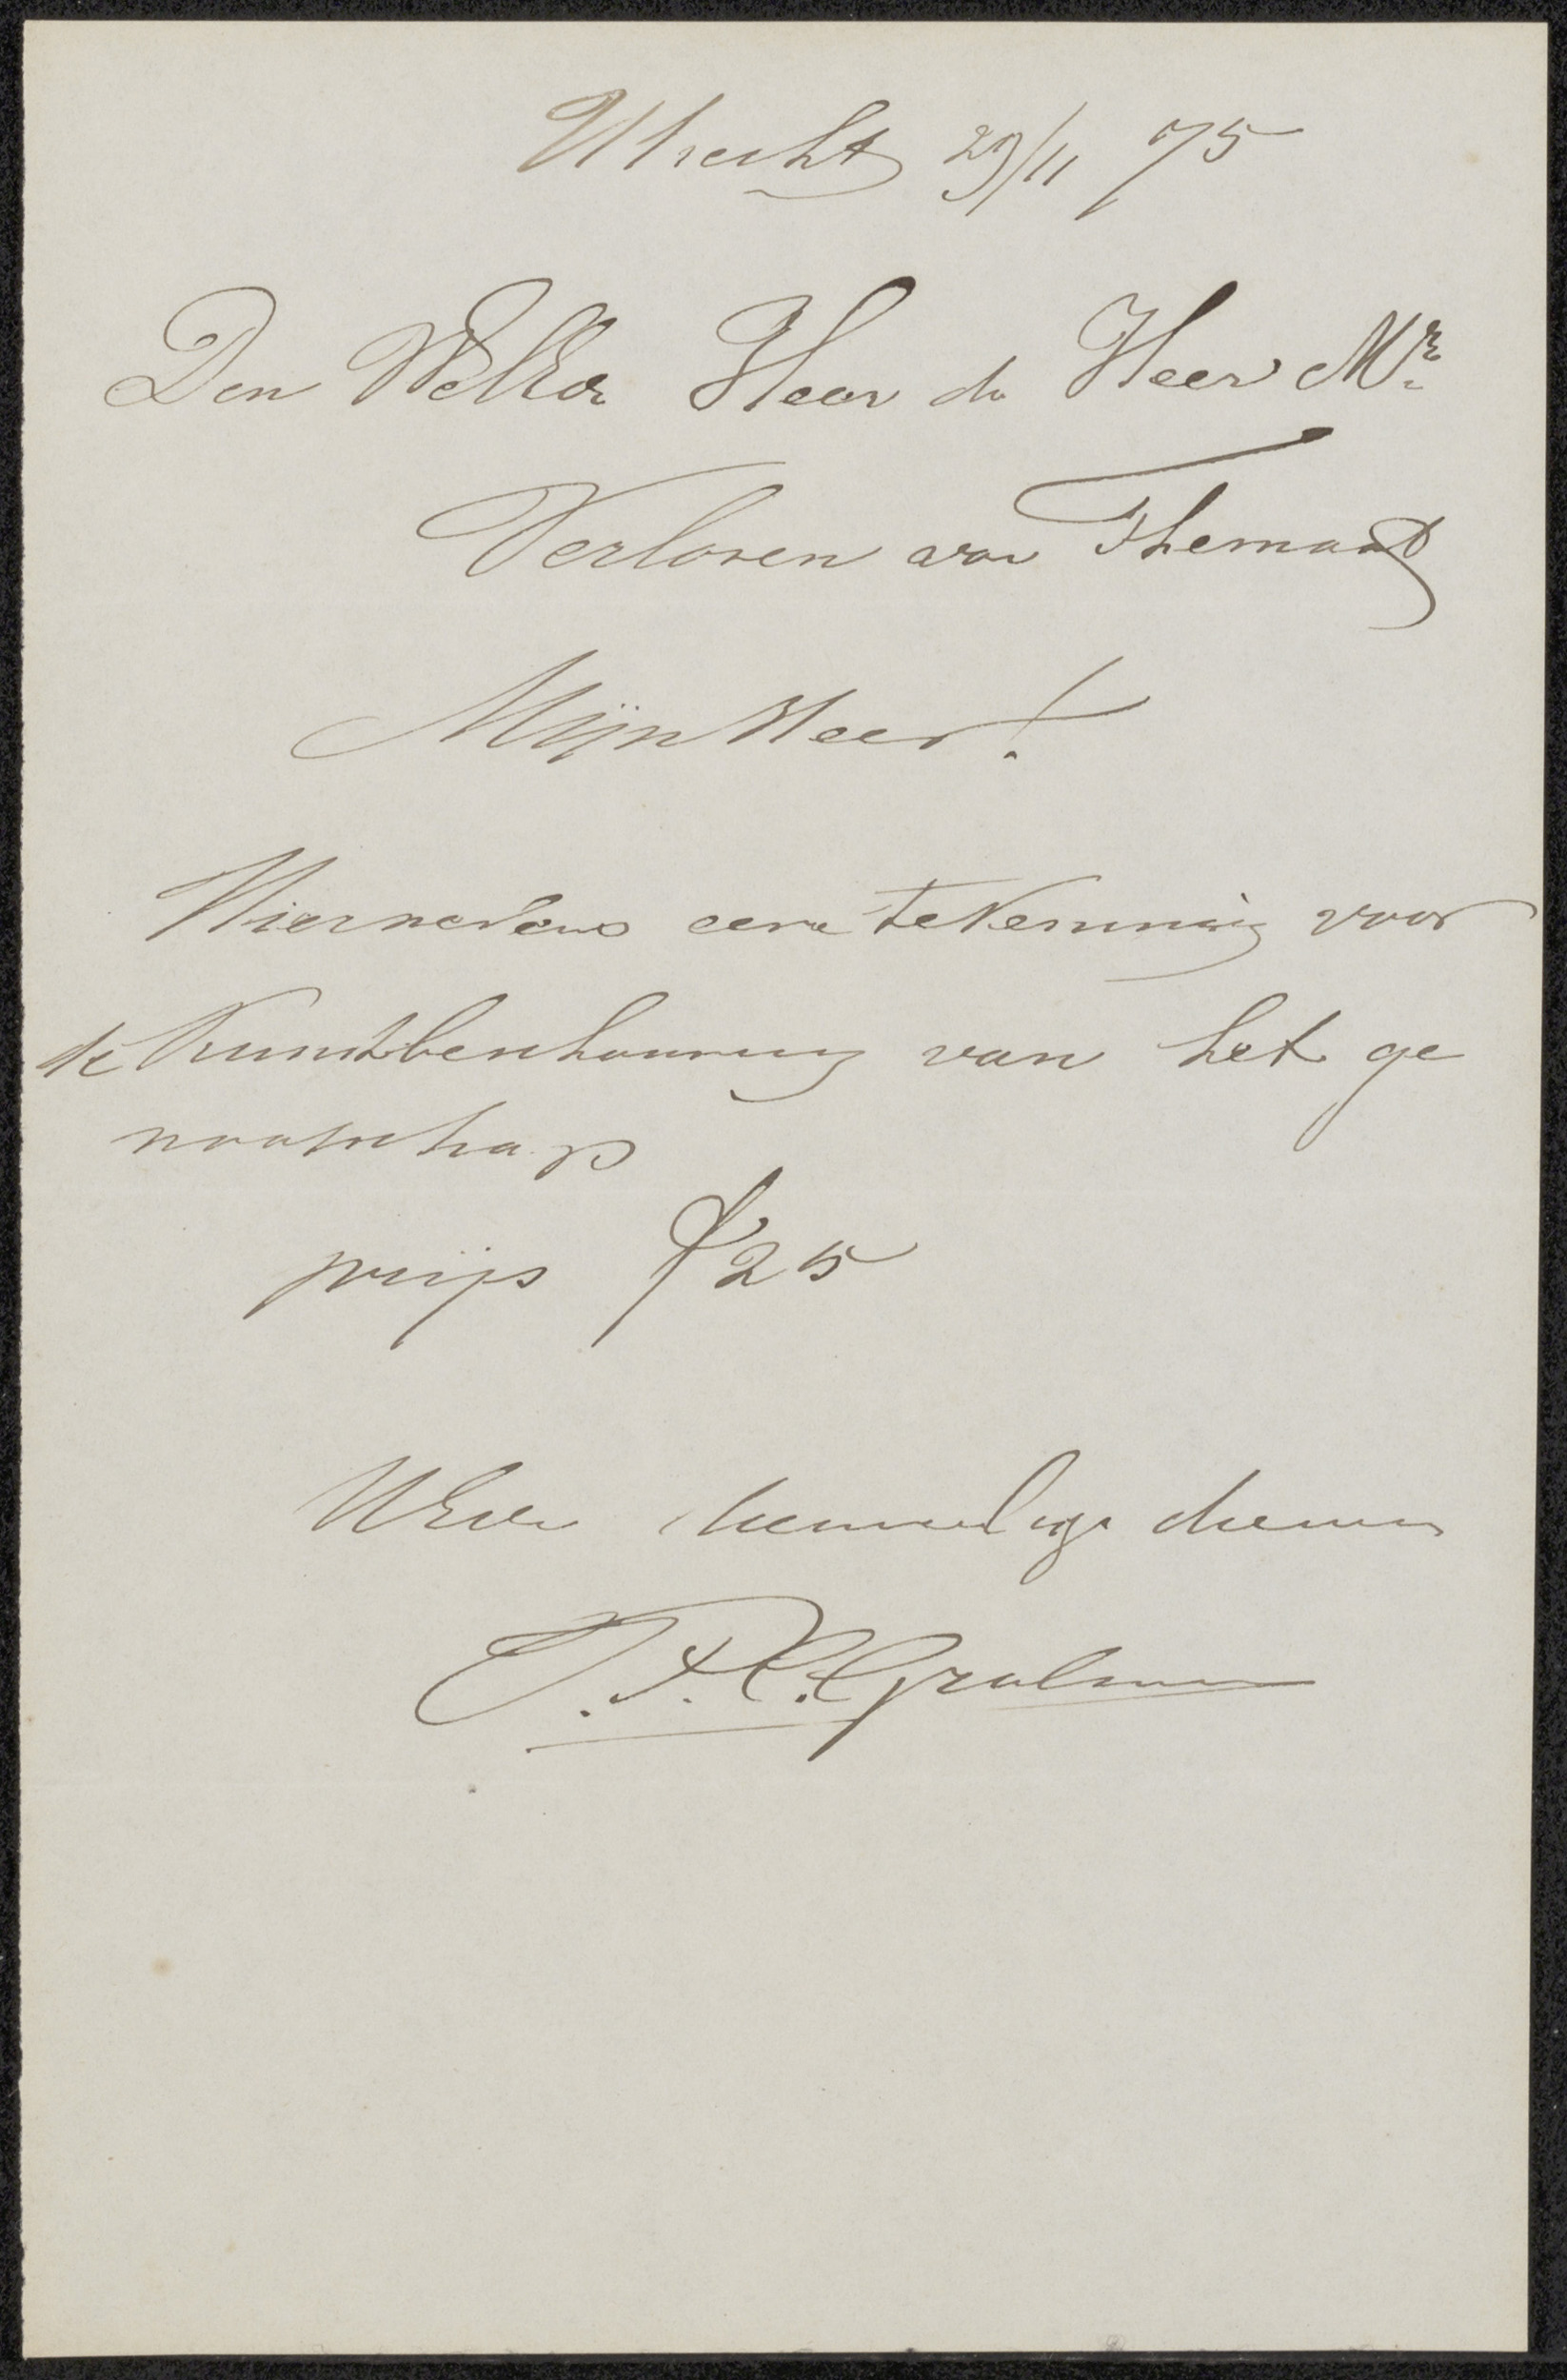 Utrecht 29/11 75
Den WelEde Heer de Heer Mr
Verloren van Themaat
MijnHeer!
Hiernevens eene tekening voor
de Kunstbeschouwing van het ge
nootschap
prijs f 25
UEde dienaar